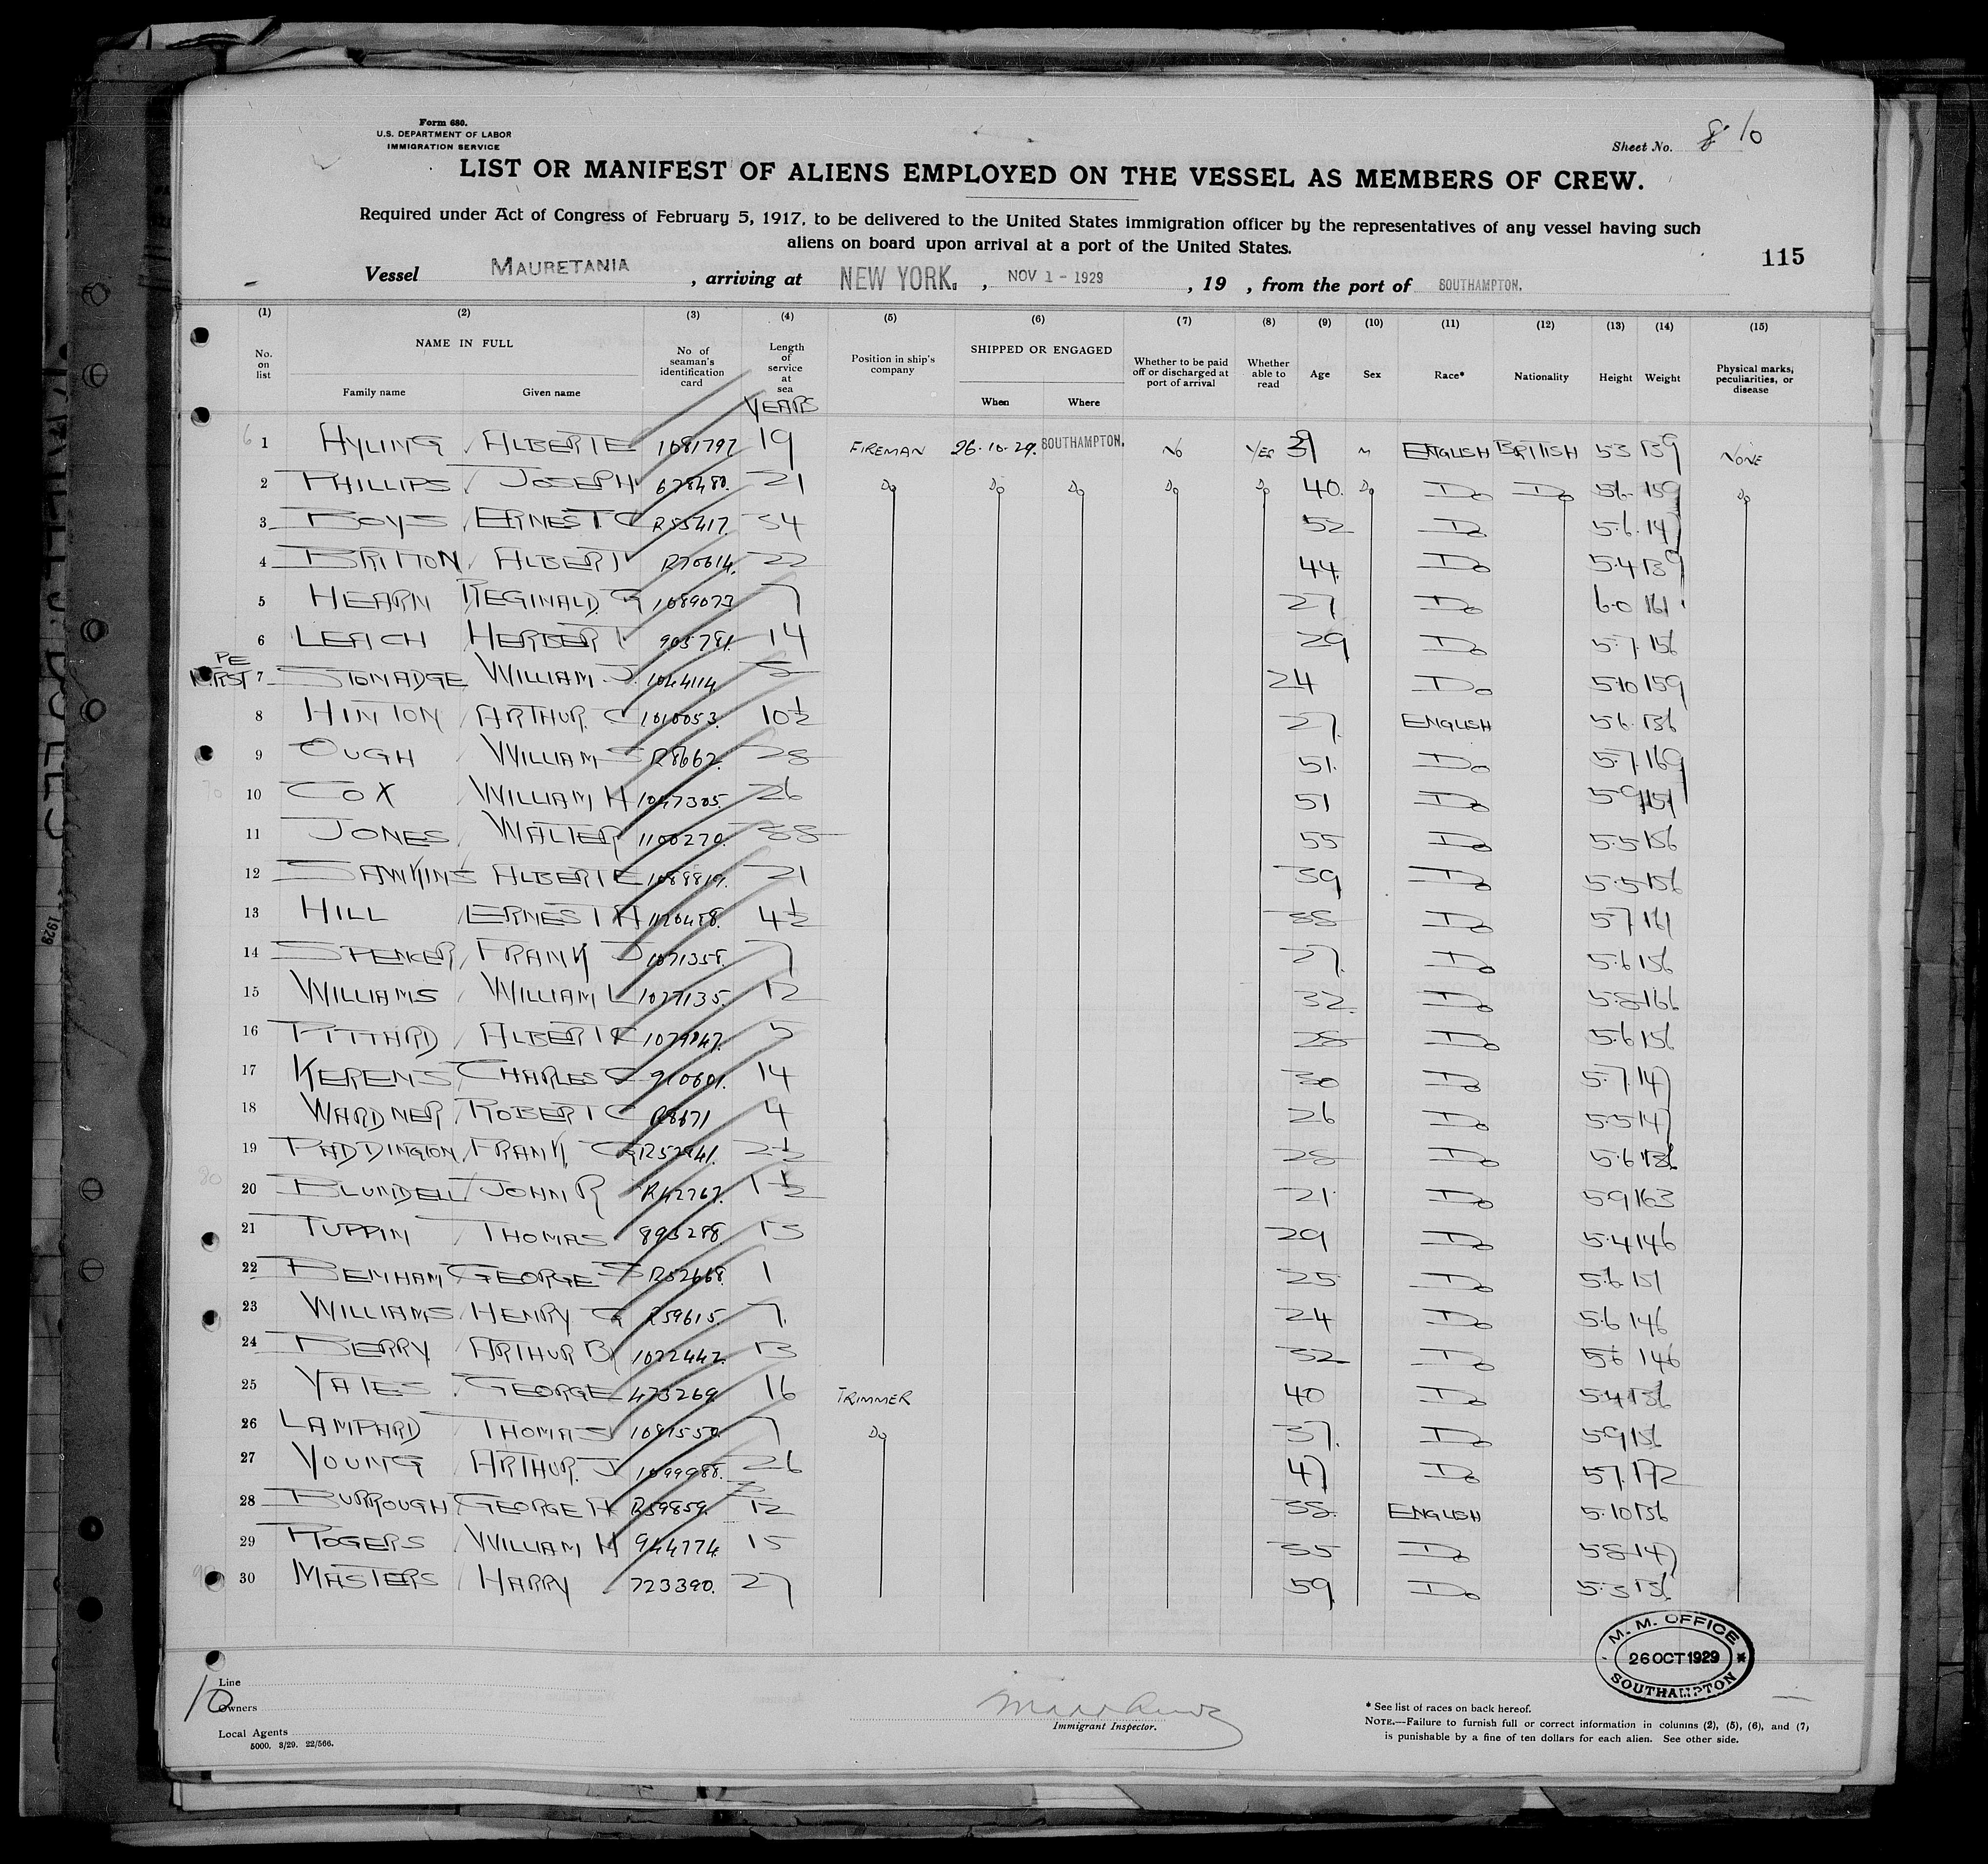 Form 680.
U.S. DEPARTMENT OF LABOR
IMMIGRATION SERVICE
Sheet No. 8 10
LIST OR MANIFEST OF ALIENS EMPLOYED ON THE VESSEL AS MEMBERS OF CREW.
Required under Act of Congress of February 5, 1917, to be delivered to the United States immigration officer by the representatives of any vessel having such
aliens on board upon arrival at a port of the United States.
115
Vessel MAURETANIA , arriving at NEW YORK. , NOV 1 - 1929 , 19 , from the port of SOUTHAMPTON.
(1) (2) (3) (4) (5) (6) (7) (8) (9) (10) (11) (12) (13) (14) (15)
No. on list NAME IN FULL Family name Given name No. of seaman's identification card Length of service at sea Position in ship's company SHIPPED OR ENGAGED When Where Whether to be paid off or discharged at port of arrival Whether able to read Age Sex Race* Nationality Height Weight Physical marks, peculiarities, or disease
YEARS
1 AYLING ALBERT E 1081797 19 FIREMAN 26.10.29. SOUTHAMPTON. NO YES M ENGLISH BRITISH 5 3 139 NONE
2 PHILLIPS JOSEPH 678480. 21 Do Do Do Do Do 40. Do Do Do 5 6 159 Do
3 BOYS ERNEST C R55417. 34 52 Do 5.6. 147
4 BRITTON ALBERT R70614. 22 44. Do 5.4 139
5 HEARN REGINALD. G 1089073 7 27 Do 6.0 161
6 LEACH HERBERT 905781. 14 29 Do 5.7. 156
7 STONADGE WILLIAM J. 1044114 5 24 Do 5.10 159
8 HINTON ARTHUR. C 1010053. 10½ 27. ENGLISH 5.6. 136
9 OUGH WILLIAM S R8662. 28 51. Do 5.7. 169
10 COX WILLIAM H 1047305. 26 51 Do 5.9 151
11 JONES WALTER 1100270. 38 55 Do 5.5 156
12 SAWKINS ALBERT E 1089819. 21 39 Do 5.5 156
13 HILL ERNEST A 4½ 38 Do 5 7 161
14 SPENCER FRANK J 1071358. 7 27. Do 5.6 156
15 WILLIAMS WILLIAM L 1027135. 12 32. Do 5.8 166
16 PITTHARD ALBERT E 5 28 Do 5.6 156
17 KERENS CHARLES C 910601. 14 30 Do 5.7. 147
18 WARDNER ROBERT C R8671 4 26 Do 5.5 147
19 PADDINGTON FRANK G R52941. 2½ 28 Do 5.6 136
20 BLUNDELL JOHN R R42767. 1½ 21 Do 5.9 163
21 TUPPIN THOMAS 893288. 13 29 Do 5.4 146
22 BENHAM GEORGE S R52668. 1 25 Do 5.6. 151
23 WILLIAMS HENRY G R59615. 7. 24 Do 5.6 146
24 BERRY ARTHUR B 1022442. 13 32 Do 5 6 146
25 YATES GEORGE 473269. 16 TRIMMER 40 Do 5.4 136
26 LAMPARD THOMAS 1081550. 7 Do 37. Do 5.9 156
27 YOUNG ARTHUR. J 1099988. 26 47 Do 5 7. 172
28 BURROUGH GEORGE H R59859. 12 38. ENGLISH 5.10 136
29 ROGERS WILLIAM H 944774. 15 35 Do 5 8 147
30 MASTERS HARRY 723390. 27 59 Do 5.3 136
M. M. OFFICE
26 OCT 1929
SOUTHAMPTON
10
Line
Owners
Local Agents
5000. 3/29. 22/566.
Immigrant Inspector.
* See list of races on back hereof.
NOTE.—Failure to furnish full or correct information in columns (2), (5), (6), and (7)
is punishable by a fine of ten dollars for each alien. See other side.